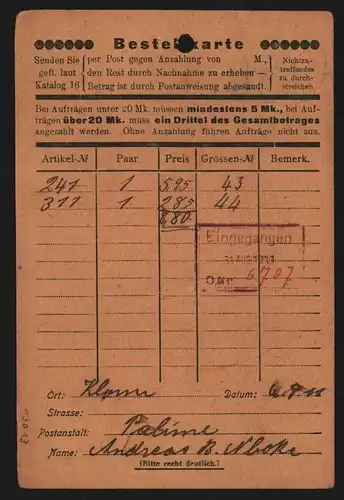 Bestellkarte
Senden Sie gefl. laut Katalog 16
per Post gegen Anzahlung von M.,
den Rest durch Nachnahme zu erheben —
Betrag ist durch Postanweisung abgesandt.
Nichtzutreffendes zu durchstreichen
Bei Aufträgen unter 20 Mk. müssen mindestens 5 Mk., bei Auf-
trägen über 20 Mk. muss ein Drittel des Gesamtbetrages
angezahlt werden. Ohne Anzahlung führen Aufträge nicht aus.
Artikel-№ Paar Preis Grössen-№ Bemerk.
241 1 5 95 43
311 1 2 85 44
8 80
Eingegangen
31 AUG 1911
6707
Ort: Datum: 6.8.11
Strasse:
Postanstalt: Palime
Name: Andreas
(Bitte recht deutlich.)